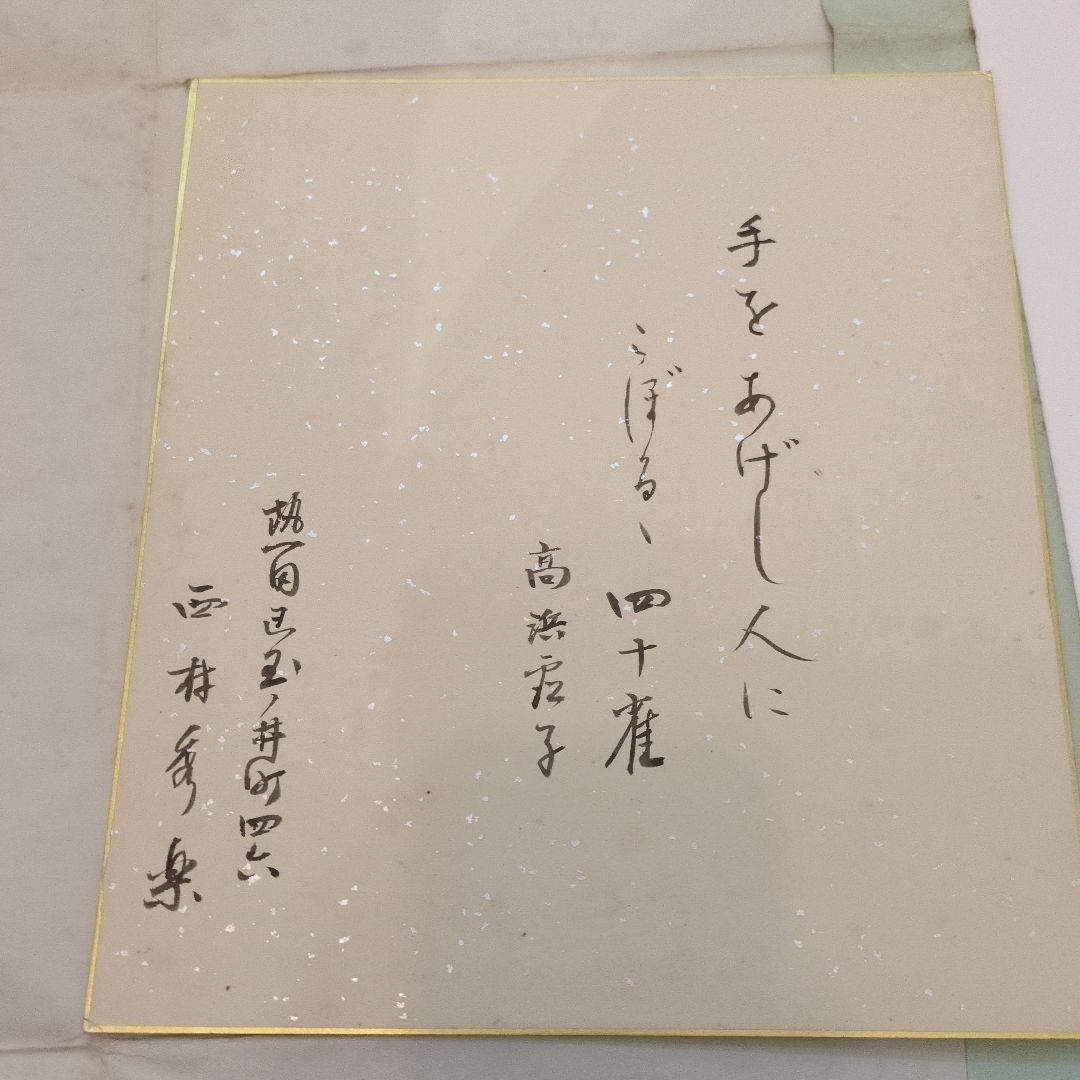 手をあげし人に
こぼるゝ四十雀
高浜虚子
玉ノ井町四六
西村秀楽